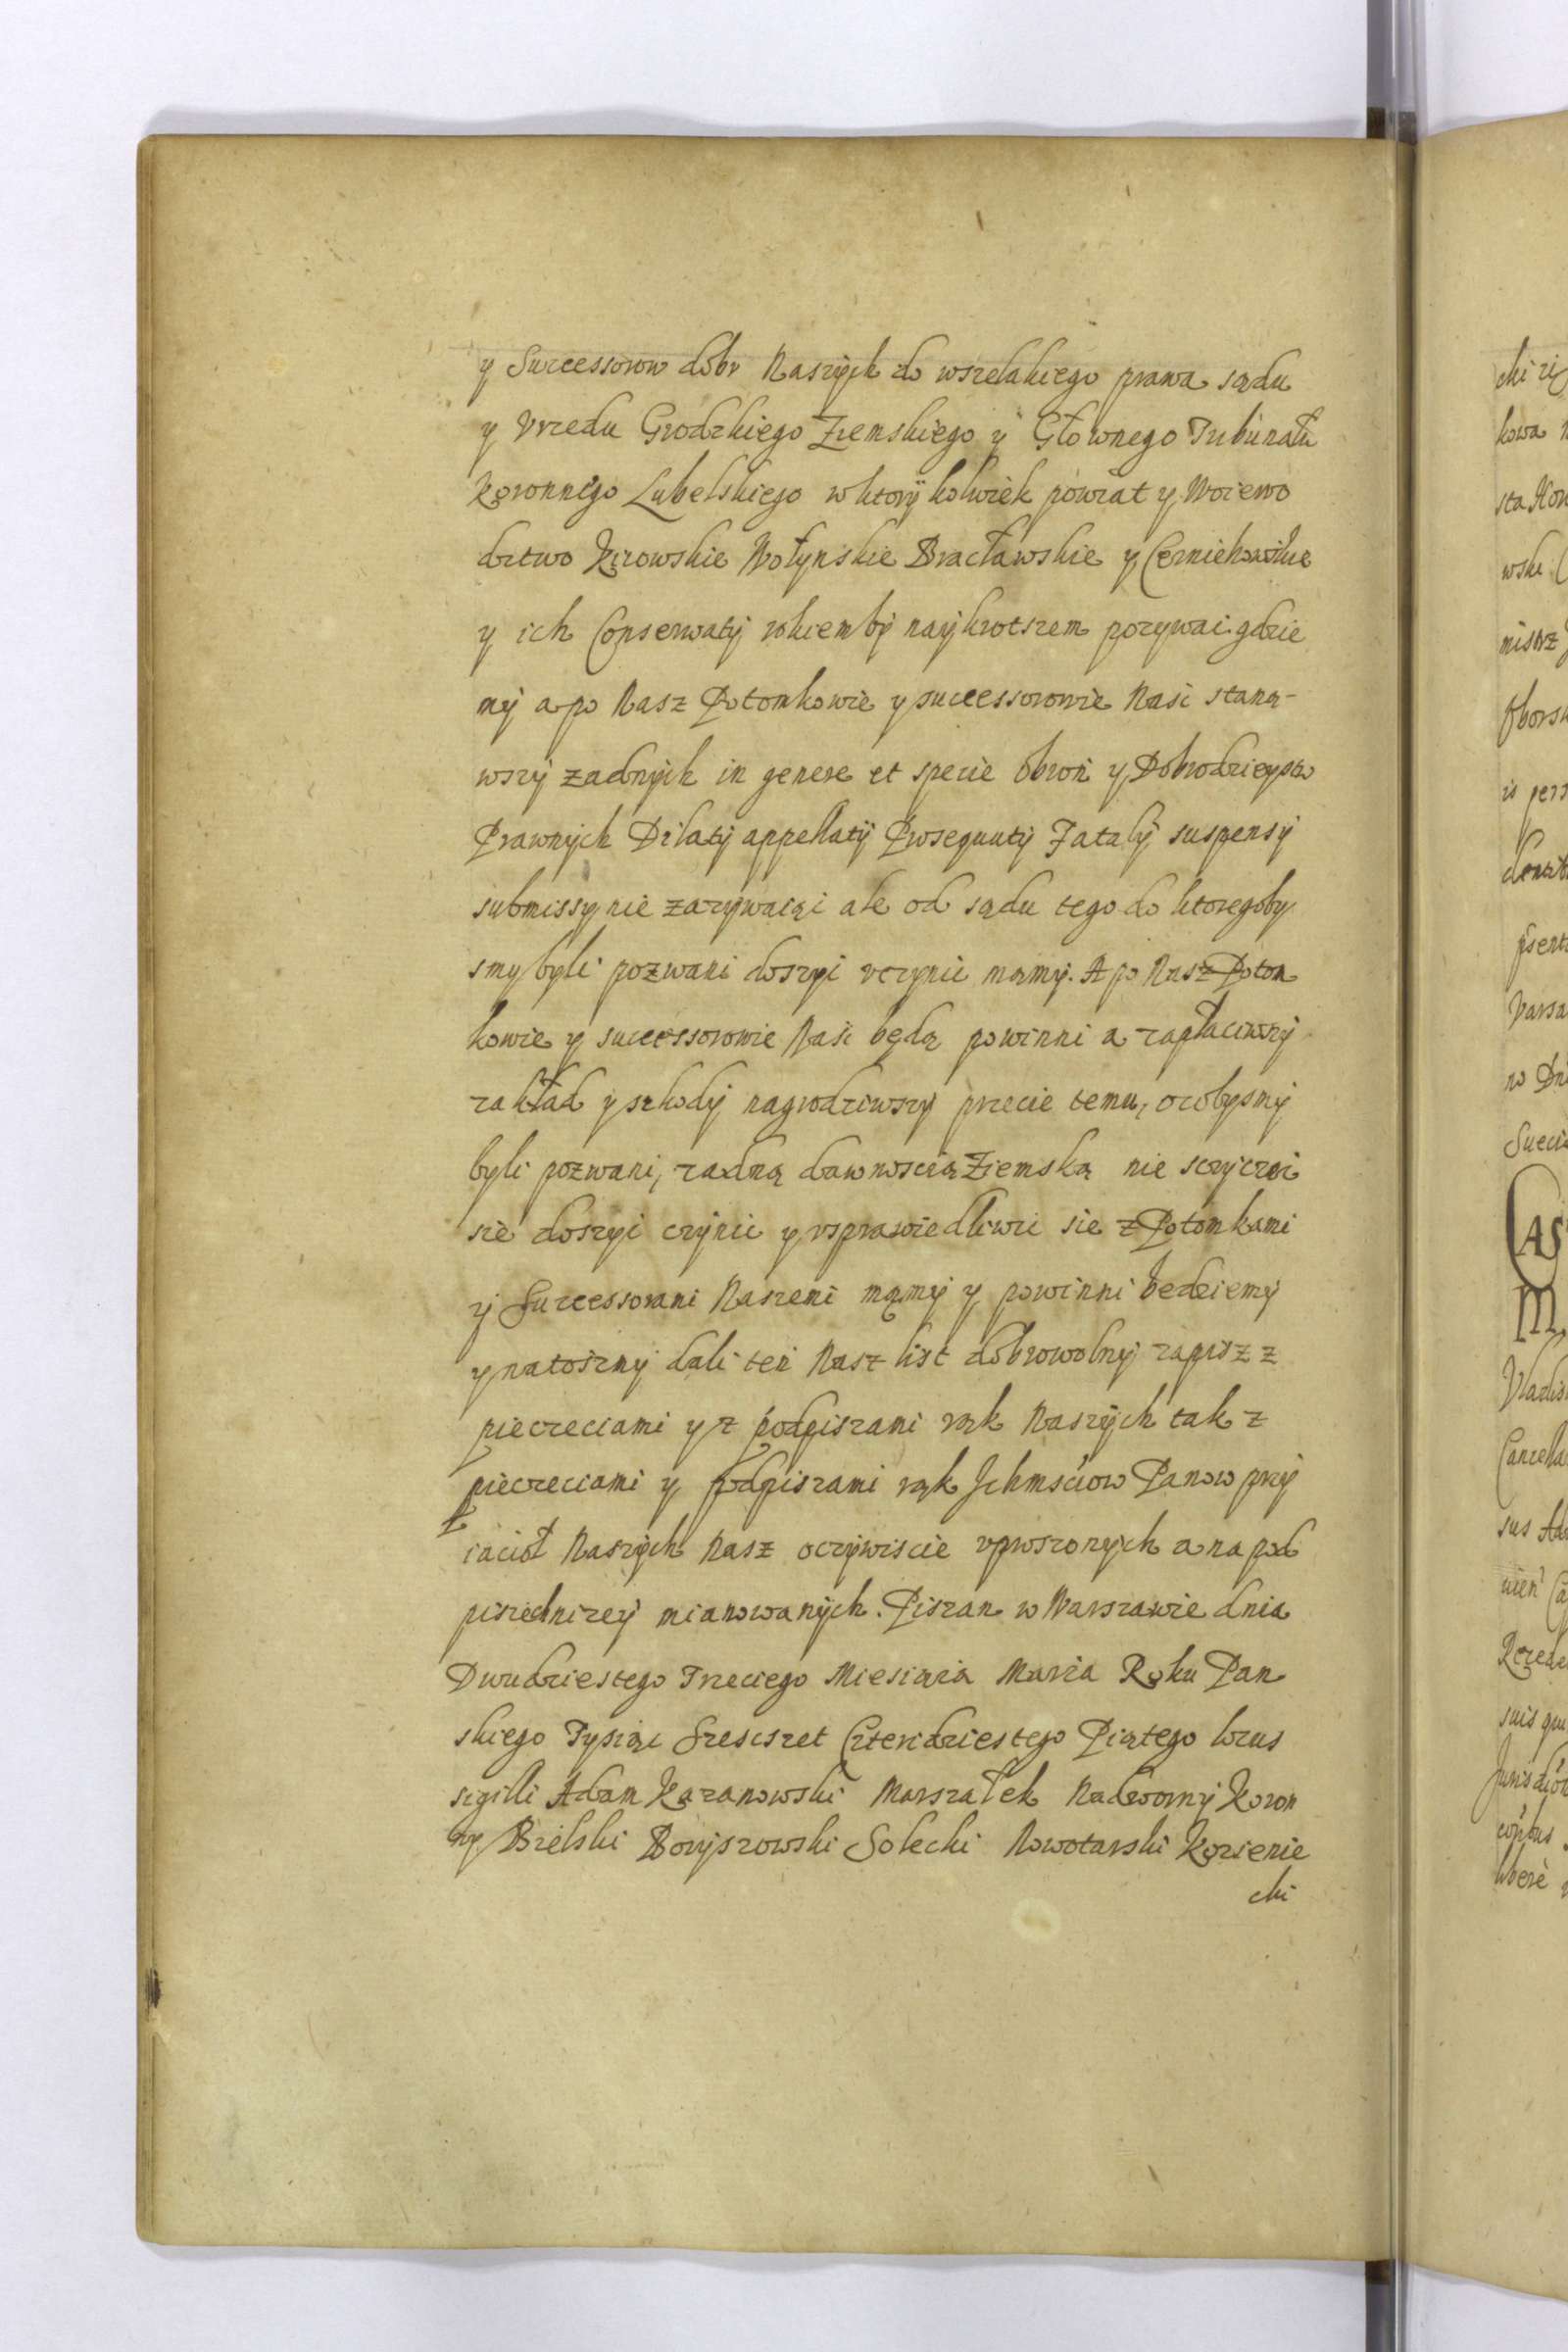 y Successorow dobr Naszych do wszelakiego prawa sądu
y Vrzedu Grodzkiego Ziemskiego y Głownego Tribunału
Koronnego Lubelskiego wktory kolwiek powiat y Woiewo
dztwo Kiiowskie Wołynskie Bracławskie y Czerniehowskie
y ich Conserwaty rokiem by naykrotszem pozywac gdzie
my a po Nasz Potomkowie y successorowie Nasi staną-
wszy zadnych in genere et specie obron y Dobrodzieystw
Prawnych Dilaty appellaty Prosequuty Fataly suspensy
submissy nie zazywaiąc ale od sądu tego do ktoregoby
smy byli pozwani doszyc vczynic mamy. A po Nasz Potom
kowie y successorowie Nasi będą powinni a zapłaciwszy
zakład y szkody nagrodziwszy przecie temu, ocobysmy
byli pozwani, zadną dawnoscią Ziemską nie sczyczac
sie doszyc czynic y vsprawiedliwic sie z Potomkami
y Successorami Naszemi mamy y powinni bedziemy
y natoszmy dali ten Nasz list dobrowolny zapis z z
pieczeciami y z podpiszami rąk Naszych tak z
pieczeciami y podpiszami rąk Ichmsciow Panow przy
iaciół Naszych Nasz oczywiscie vproszonych a na pod
piszie nizey mianowanych. Piszan w Warszawie dnia
Dwudziestego Trzeciego Miesiąca Marca Roku Pan
skiego Tysiąc Szesczset Czterdziestego Piątego locus
sigilli Adam Kazanowski Marszałek Nadworny Koron
ny Bielski Boryszowski Solecki Nowotarski Kozienie
cki